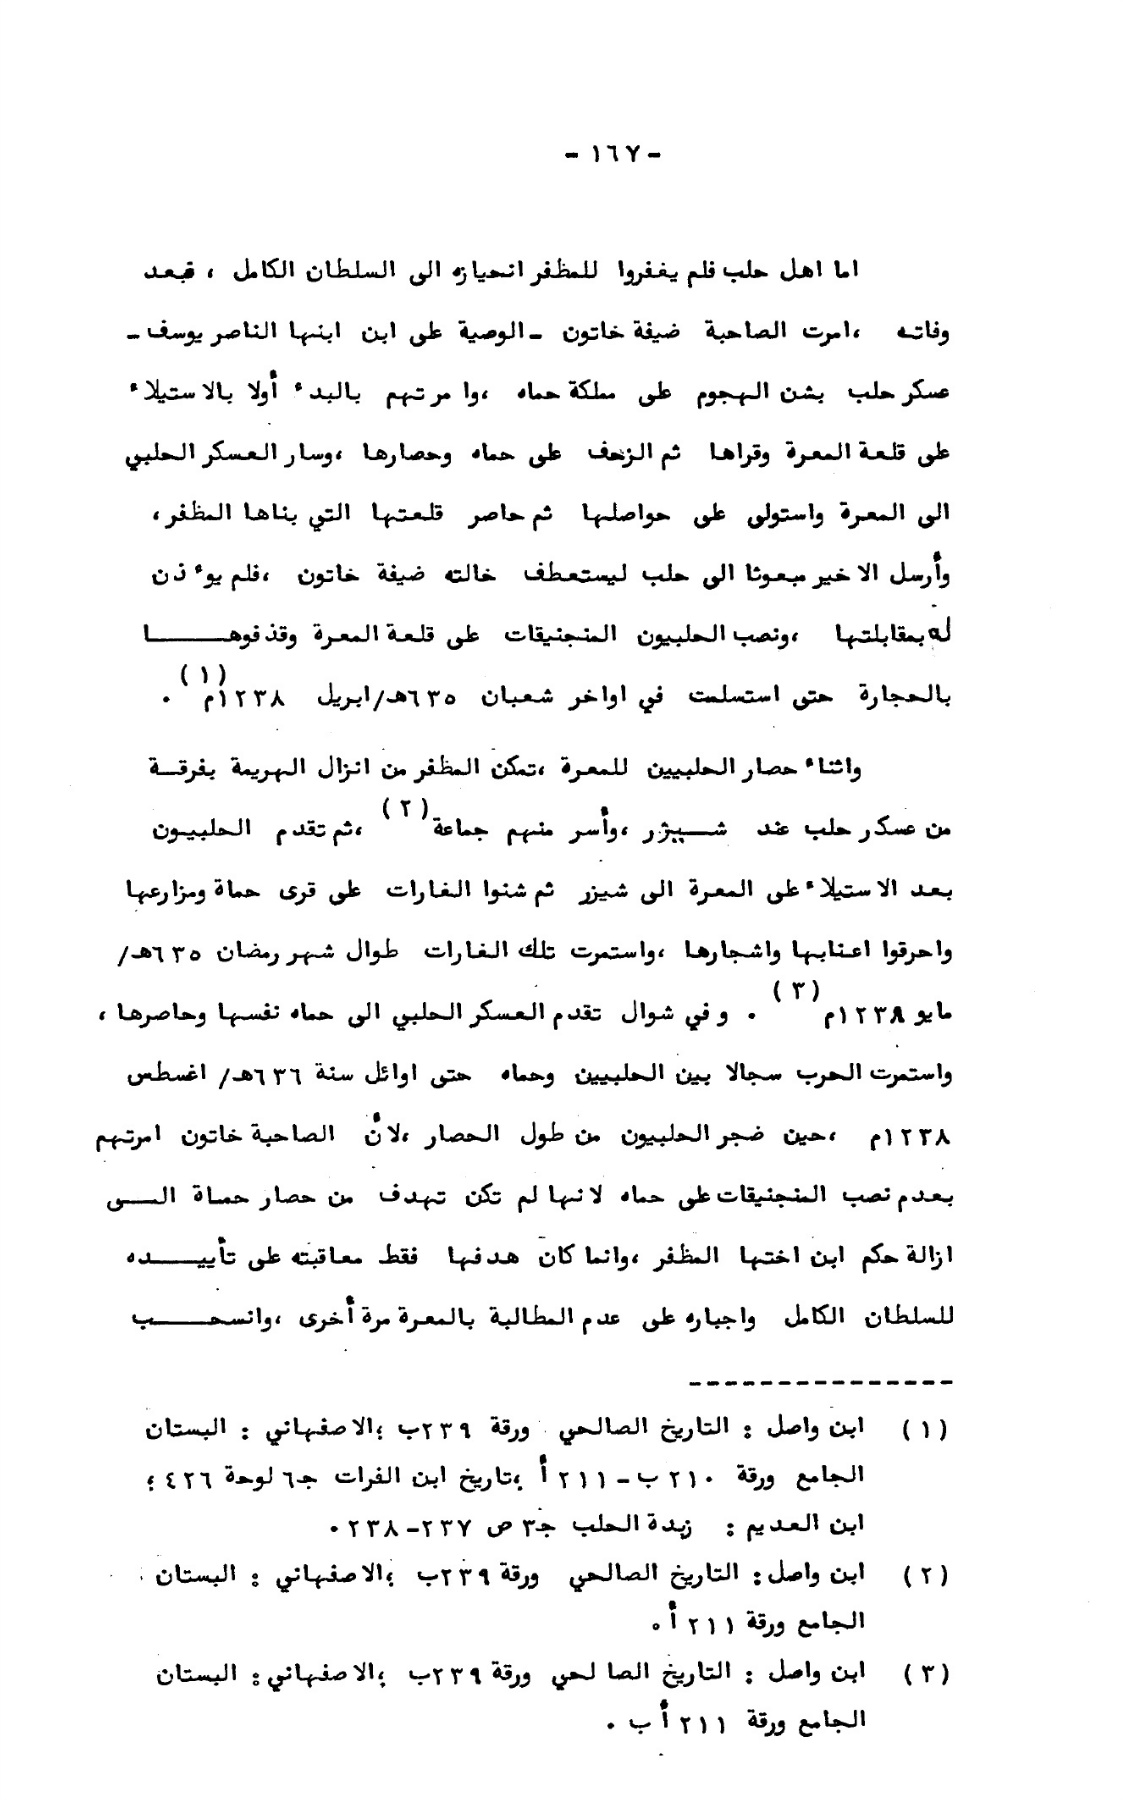 - ١٦٧ -
اما اهل حلب فلم يغفروا للمظفر انحيازه الى السلطان الكامل ، فبعد
وفاته ،امرت الصاحبة ضيفة خاتون -الوصية على ابن ابنها الناصر يوسف-
عسكر حلب بشن الهجوم على مملكة حماه ،وامرتهم بالبدء أولا بالاستيلاء
على قلعة المعرة وقراها ثم الزحف على حماه وحصارها ،وسار العسكر الحلبي
الى المعرة واستولى على حواصلها ثم حاصر قلعتها التي بناها المظفر ،
وأرسل الاخير مبعوثا الى حلب ليستعطف خالته ضيفة خاتون ،فلم يوءذن
له بمقابلتها ،ونصب الحلبيون المنجنيقات على قلعة المعرة وقذفوهـــا
بالحجارة حتى استسلمت في اواخر شعبان ٦٣٥هـ/ابريل ١٢٣٨م (١) .
واثناء حصار الحلبيين للمعرة ،تمكن المظفر من انزال الهريمة بفرقــة
من عسكر حلب عند شــيزر ،وأسر منهم جماعة (٢) ،ثم تقدم الحلبيـون
بعد الاستيلاء على المعرة الى شيزر ثم شنوا الغارات على قرى حماة ومزارعها
واحرقوا اعنابها واشجارها ،واستمرت تلك الغارات طوال شهر رمضان ٦٣٥هـ/
مايو ١٢٣٨م (٣) . وفي شوال تقدم العسكر الحلبي الى حماه نفسها وحاصرها ،
واستمرت الحرب سجالا بين الحلبيين وحماه حتى اوائل سنة ٦٣٦هـ/ اغسطس
١٢٣٨م ،حين ضجر الحلبيون من طول الحصار ،لأن الصاحبة خاتون امرتهم
بعدم نصب المنجنيقات على حماه لانها لم تكن تهدف من حصار حمـاة الــى
ازالة حكم ابن اختها المظفر ،وانما كان هدفها فقط معاقبته على تأييـــده
للسلطان الكامل واجباره على عدم المطالبة بالمعرة مرة أخرى ،وانسحــب
---------------
(١) ابن واصل : التاريخ الصالحي ورقة ٢٣٩ب ؛الاصفهاني : البستان
الجامع ورقة ٢١٠ب-٢١١أ ؛تاريخ ابن الفرات جـ٦ لوحة ٤٢٦ ؛
ابن العديم : زبدة الحلب جـ٣ ص ٢٣٧-٢٣٨ .
(٢) ابن واصل : التاريخ الصالحي ورقة ٢٣٩ب ؛الاصفهاني : البستان
الجامع ورقة ٢١١أ .
(٣) ابن واصل : التاريخ الصالحي ورقة ٢٣٩ب ؛الاصفهاني : البستان
الجامع ورقة ٢١١أ ب .